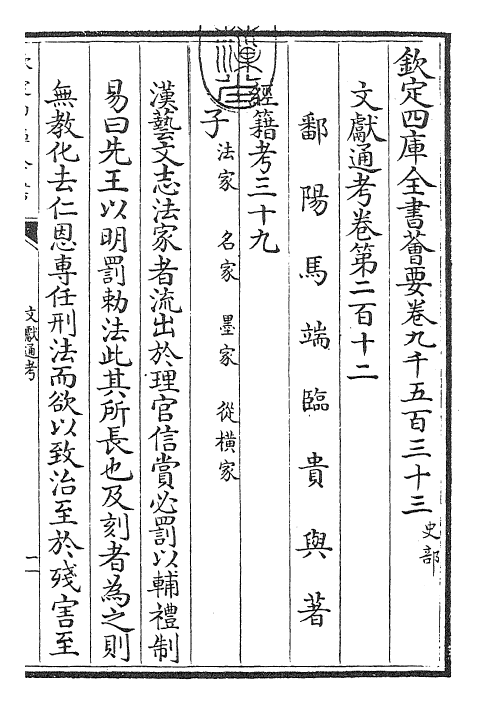 欽定四庫全書薈要卷九千五百三十三 史部
文獻通考卷第二百十二
鄱陽馬端臨貴與著
經籍考三十九
子 法家 名家 墨家 從横家
漢藝文志法家者流出於理官信賞必罰以輔禮制
易曰先王以明罰勅法此其所長也及刻者為之則
無教化去仁恩専任刑法而欲以致治至於殘害至
文獻通考
一